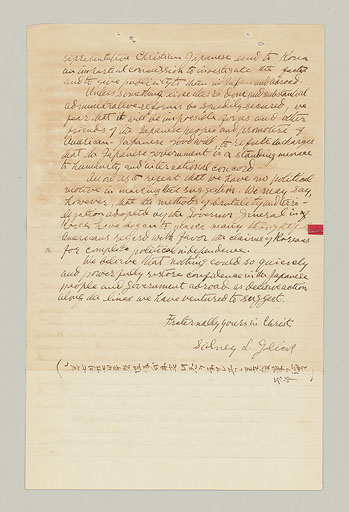 representative Christian Japanese send to Korea
an impartial commission to investigate the facts
and to give publicity to them in Japan and abroad.
Unless something like this is done and substantial
administrative reforms be speedily secured, we
fear that it will be impossible for us and other
friends of the Japanese people and promoters of
American-Japanese good will to refute the charges
that the Japanese government is a standing menace
to humanity and international concord.
Allow us to repeat that we have no political
motive in making this suggestion. We may say,
however, that the methods of brutality and
adopted by the Governor General in
Korea have begun to make many thoughtful
Americans regard with favor the claims of Koreans
for complete political independence.
We believe that nothing could so quickly
and powerfully restore confidence in the Japanese
people and Government abroad as decisive action
along the lines we have ventured to suggest.
Fraternally yours in Christ
Sidney L. Gulick